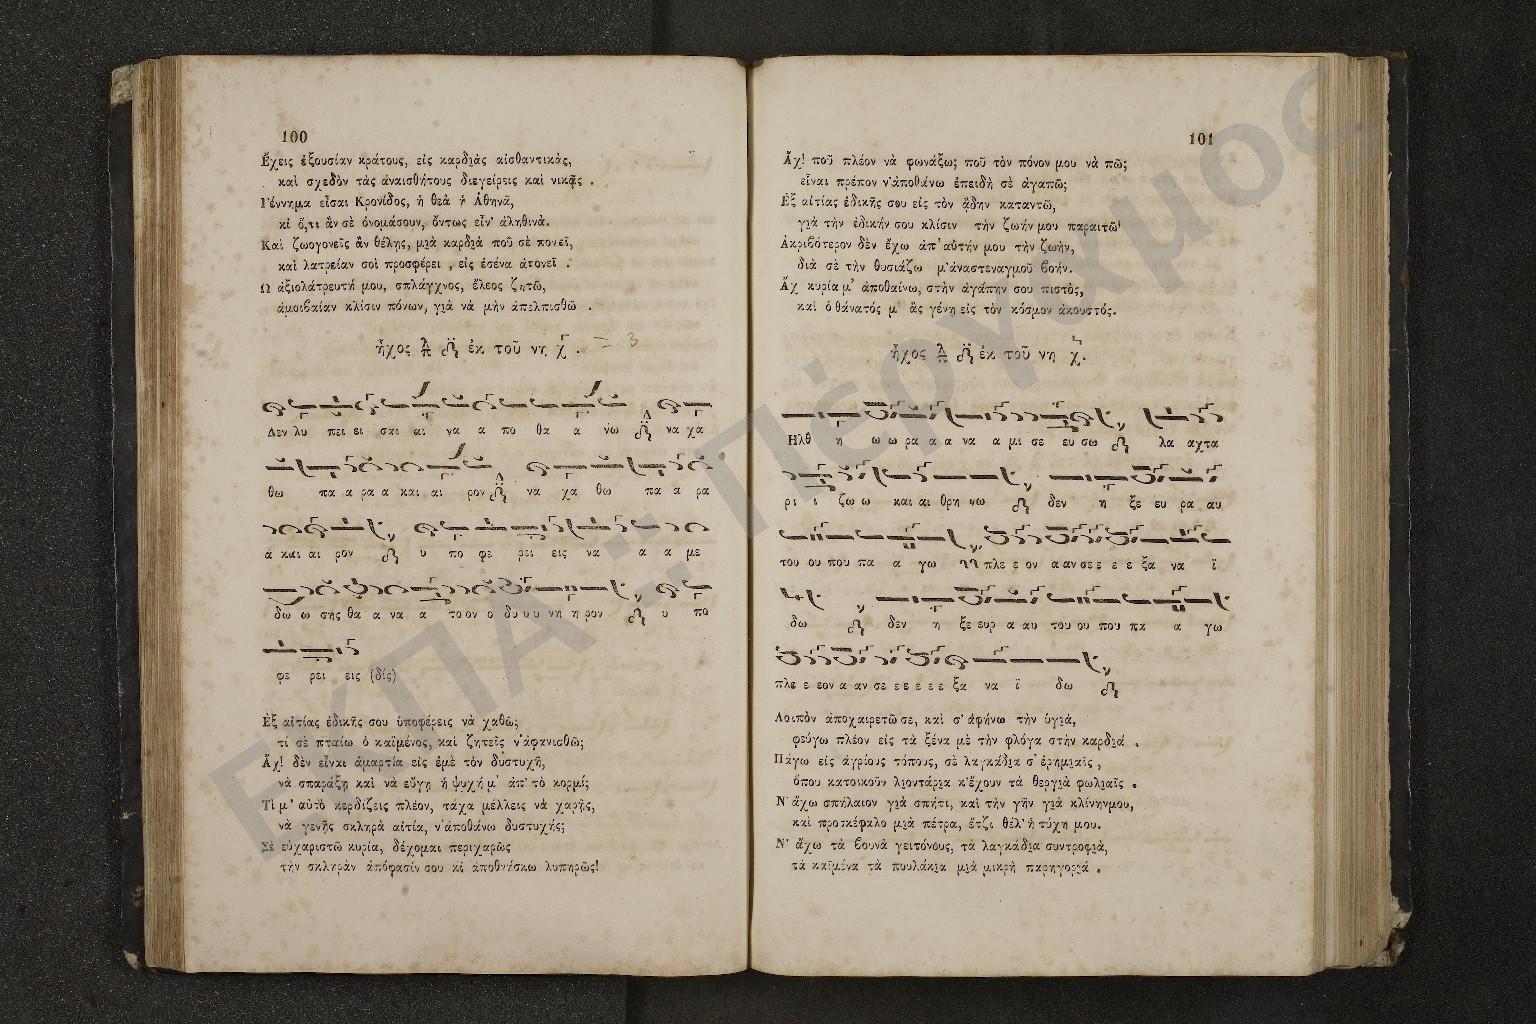 100
Ἔχεις ἐξουσίαν κράτους, εἰς καρδιὰς αἰσθαντικὰς,
καὶ σχεδὸν τὰς ἀναισθήτους διεγείρεις καὶ νικᾷς.
Γέννημα εἶσαι Κρονίδος, ἡ θεὰ ἡ Ἀθηνᾶ,
κἰ ὅ,τι ἂν σὲ ὀνομάσουν, ὄντως εἶν' ἀληθινά.
Καὶ ζωογονεῖς ἂν θέλῃς, μιὰ καρδιὰ ποῦ σὲ πονεῖ,
καὶ λατρείαν σοὶ προσφέρει, εἰς ἐσένα ἀτονεῖ.
Ὦ ἀξιολάτρευτή μου, σπλάγχνος, ἔλεος ζητῶ,
ἀμοιβαίαν κλίσιν πόνων, γιὰ νὰ μὴν ἀπελπισθῶ.
ἦχος ἐκ τοῦ νη = 3
Δεν λυ πει ει σαι αι να α πο θα α νω να χα
θω πα α ρα α και αι ρον να χα θω πα α ρα
α και αι ρον υ πο φε ρει εις να α α με
δω ω σης θα α να α το ον ο δυ υ υ νη η ρον υ πο
φε ρει εις (δίς)
Ἐξ αἰτίας ἐδικῆς σου ὑποφέρεις νὰ χαθῶ;
τί σὲ πταίω ὁ καϊμένος, καὶ ζητεῖς ν' ἀφανισθῶ;
Ἄχ! δὲν εἶναι ἁμαρτία εἰς ἐμὲ τὸν δυστυχῆ,
νὰ σπαράξῃ καὶ νὰ εὔγῃ ἡ ψυχή μ' ἀπ' τὸ κορμί;
Τί μ' αὐτὸ κερδίζεις πλέον, τάχα μέλλεις νὰ χαρῇς,
νὰ γενῇς σκληρὰ αἰτία, ν' ἀποθάνω δυστυχής;
Σὲ εὐχαριστῶ κυρία, δέχομαι περιχαρῶς
τὴν σκληρὰν ἀπόφασίν σου κἰ ἀποθνήσκω λυπηρῶς!
101
Ἄχ! ποῦ πλέον νὰ φωνάξω; ποῦ τὸν πόνον μου νὰ πῶ;
εἶναι πρέπον ν' ἀποθάνω ἐπειδὴ σὲ ἀγαπῶ;
Ἐξ αἰτίας ἐδικῆς σου εἰς τὸν ᾅδην καταντῶ,
γιὰ τὴν ἐδικήν σου κλίσιν τὴν ζωήν μου παραιτῶ·
Ἀκριβότερον δὲν ἔχω ἀπ' αὐτήν μου τὴν ζωήν,
διὰ σὲ τὴν θυσιάζω μ' ἀναστεναγμοῦ βοήν.
Ἄχ κυρία μ' ἀποθαίνω, στὴν ἀγάπην σου πιστὸς,
καὶ ὁ θάνατός μ' ἂς γένῃ εἰς τὸν κόσμον ἀκουστός.
ἦχος ἐκ τοῦ νη
Ηλθ η ω ω ρα α α να α μι σε ευ σω λα αχτα
ρι ι ζω ω και αι θρη νω δεν η ξε ευ ρα αυ
του ου που πα α γω πλε ε ον α αν σε ε ε ε ξα να ϊ
δω δεν η ξε ευρ α αυ του ου που πα α γω
πλε ε εον α αν σε ε ε ε ε ε ξα να ϊ δω
Λοιπὸν ἀποχαιρετῶ σε, καὶ σ' ἀφήνω τὴν ὑγιά,
φεύγω πλέον εἰς τὰ ξένα μὲ τὴν φλόγα στὴν καρδιά.
Πάγω εἰς ἀγρίους τόπους, σὲ λαγκάδια σ' ἐρημιαῖς,
ὅπου κατοικοῦν λιοντάρια κ' ἔχουν τὰ θεργιὰ φωλιαῖς.
Ν' ἄχω σπήλαιον γιὰ σπῆτι, καὶ τὴν γῆν γιὰ κλίνην μου,
καὶ προσκέφαλο μιὰ πέτρα, ἔτζι θέλ' ἡ τύχη μου.
Ν' ἄχω τὰ βουνὰ γειτόνους, τὰ λαγκάδια συντροφιά,
τὰ καϊμένα τὰ πουλάκια μιὰ μικρὴ παρηγοριά.
ΕΚΠΑ "Πέργαμος